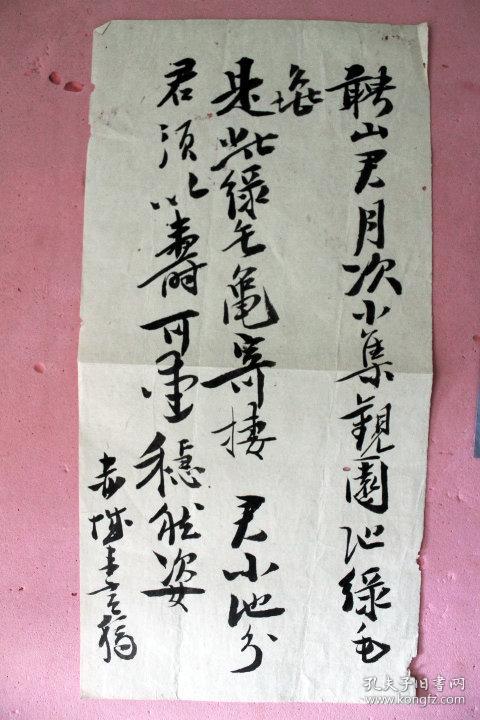 聘山君月次小集觀園池綠毛
龜
是此綠毛龜寄棲 君小池分
君須以壽可愛穩然姿
赤城主言稿
孔夫子旧书网
www.kongfz.com